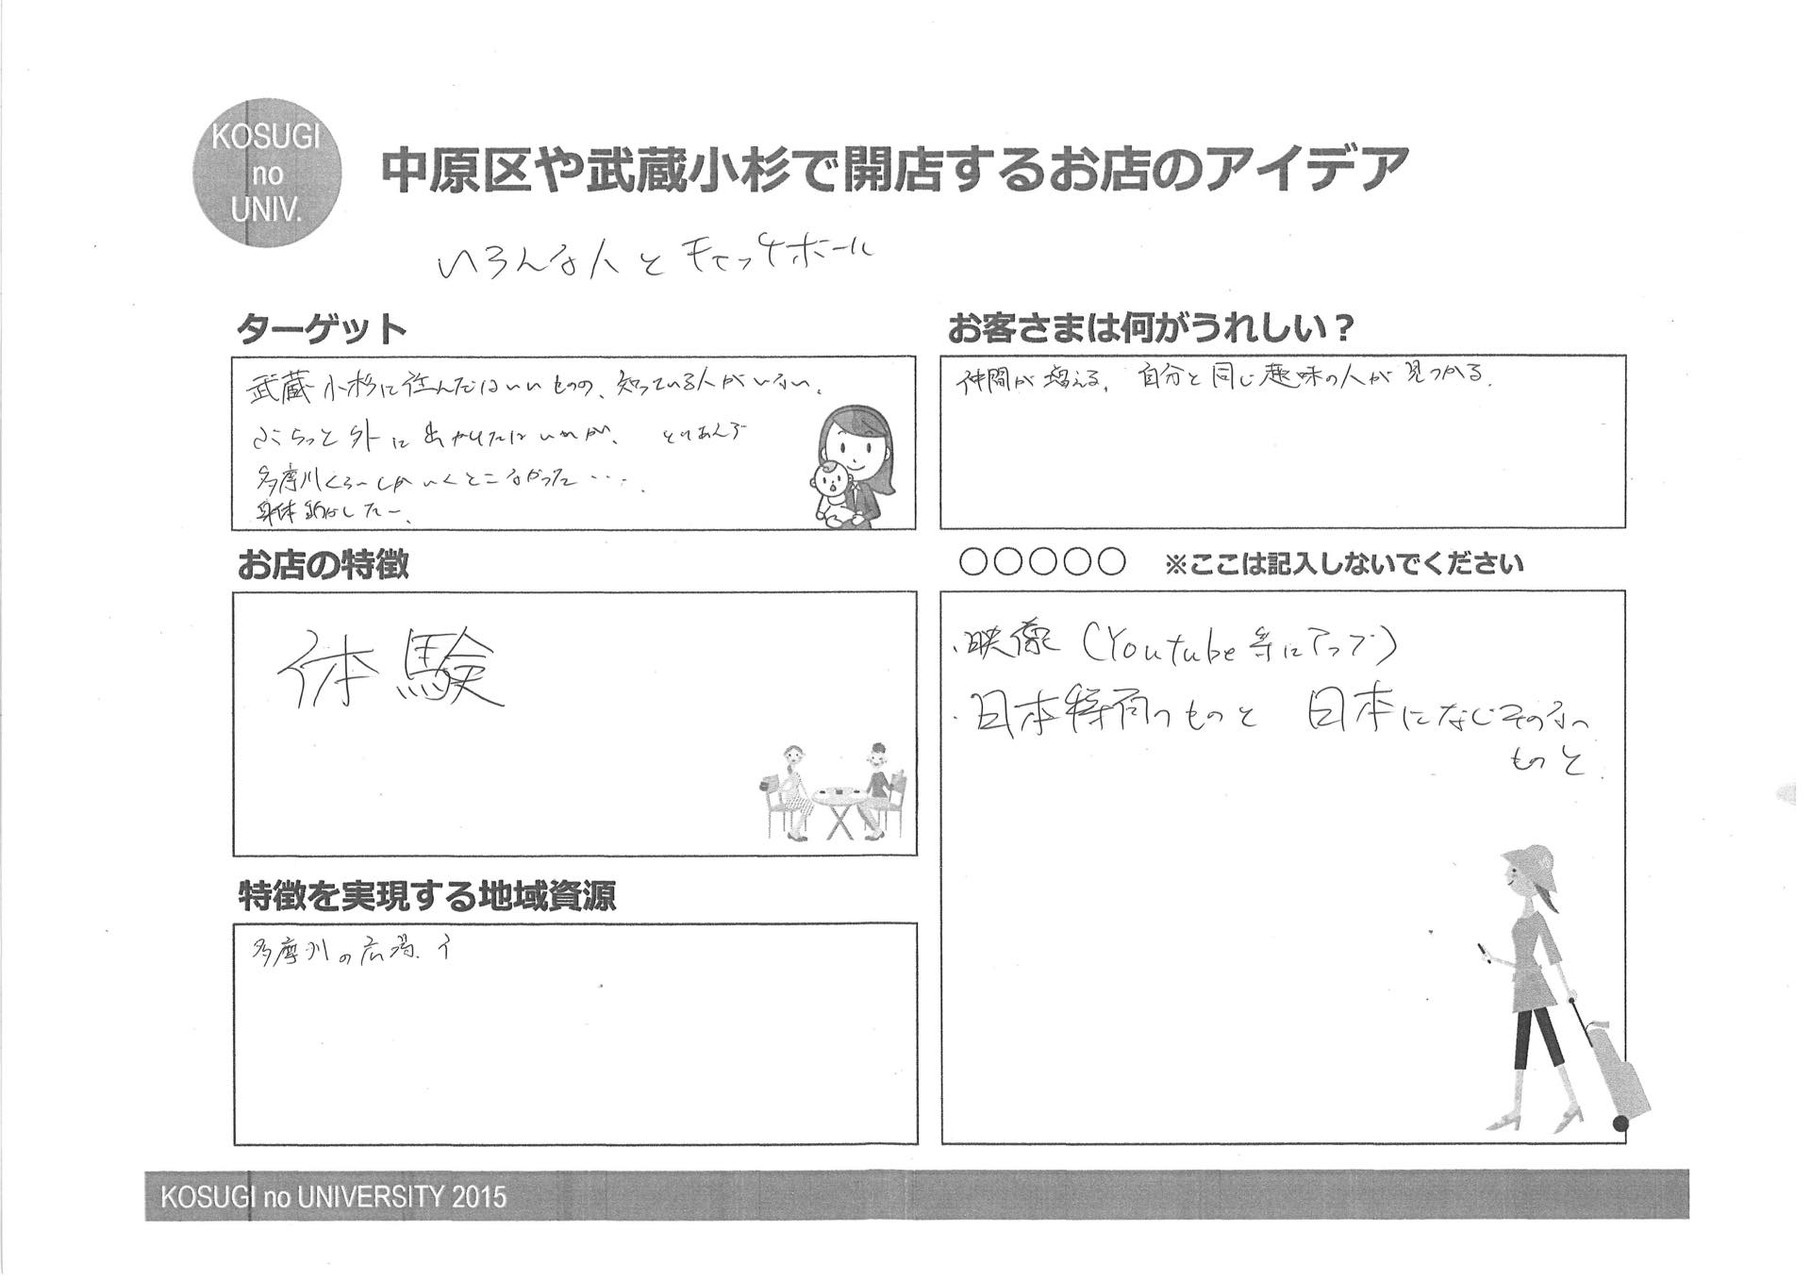 KOSUGI
no
UNIV.
中原区や武蔵小杉で開店するお店のアイデア
いろんな人とキャッチボール
ターゲット
武蔵小杉に住んだはいいものの、知っている人がいない。
ぶらっと外に出かけたはいいが、とりあえず
多摩川くらいしかいくところなかった・・・.
身体動かしたー、
お店の特徴
体験
特徴を実現する地域資源
多摩川の広場、
お客さまは何がうれしい？
仲間が増える。自分と同じ趣味の人が見つかる。
○○○○○ ※ここは記入しないでください
・映像（Youtube等にアップ）
・日本特有のものと 日本になじ
ものと
KOSUGI no UNIVERSITY 2015